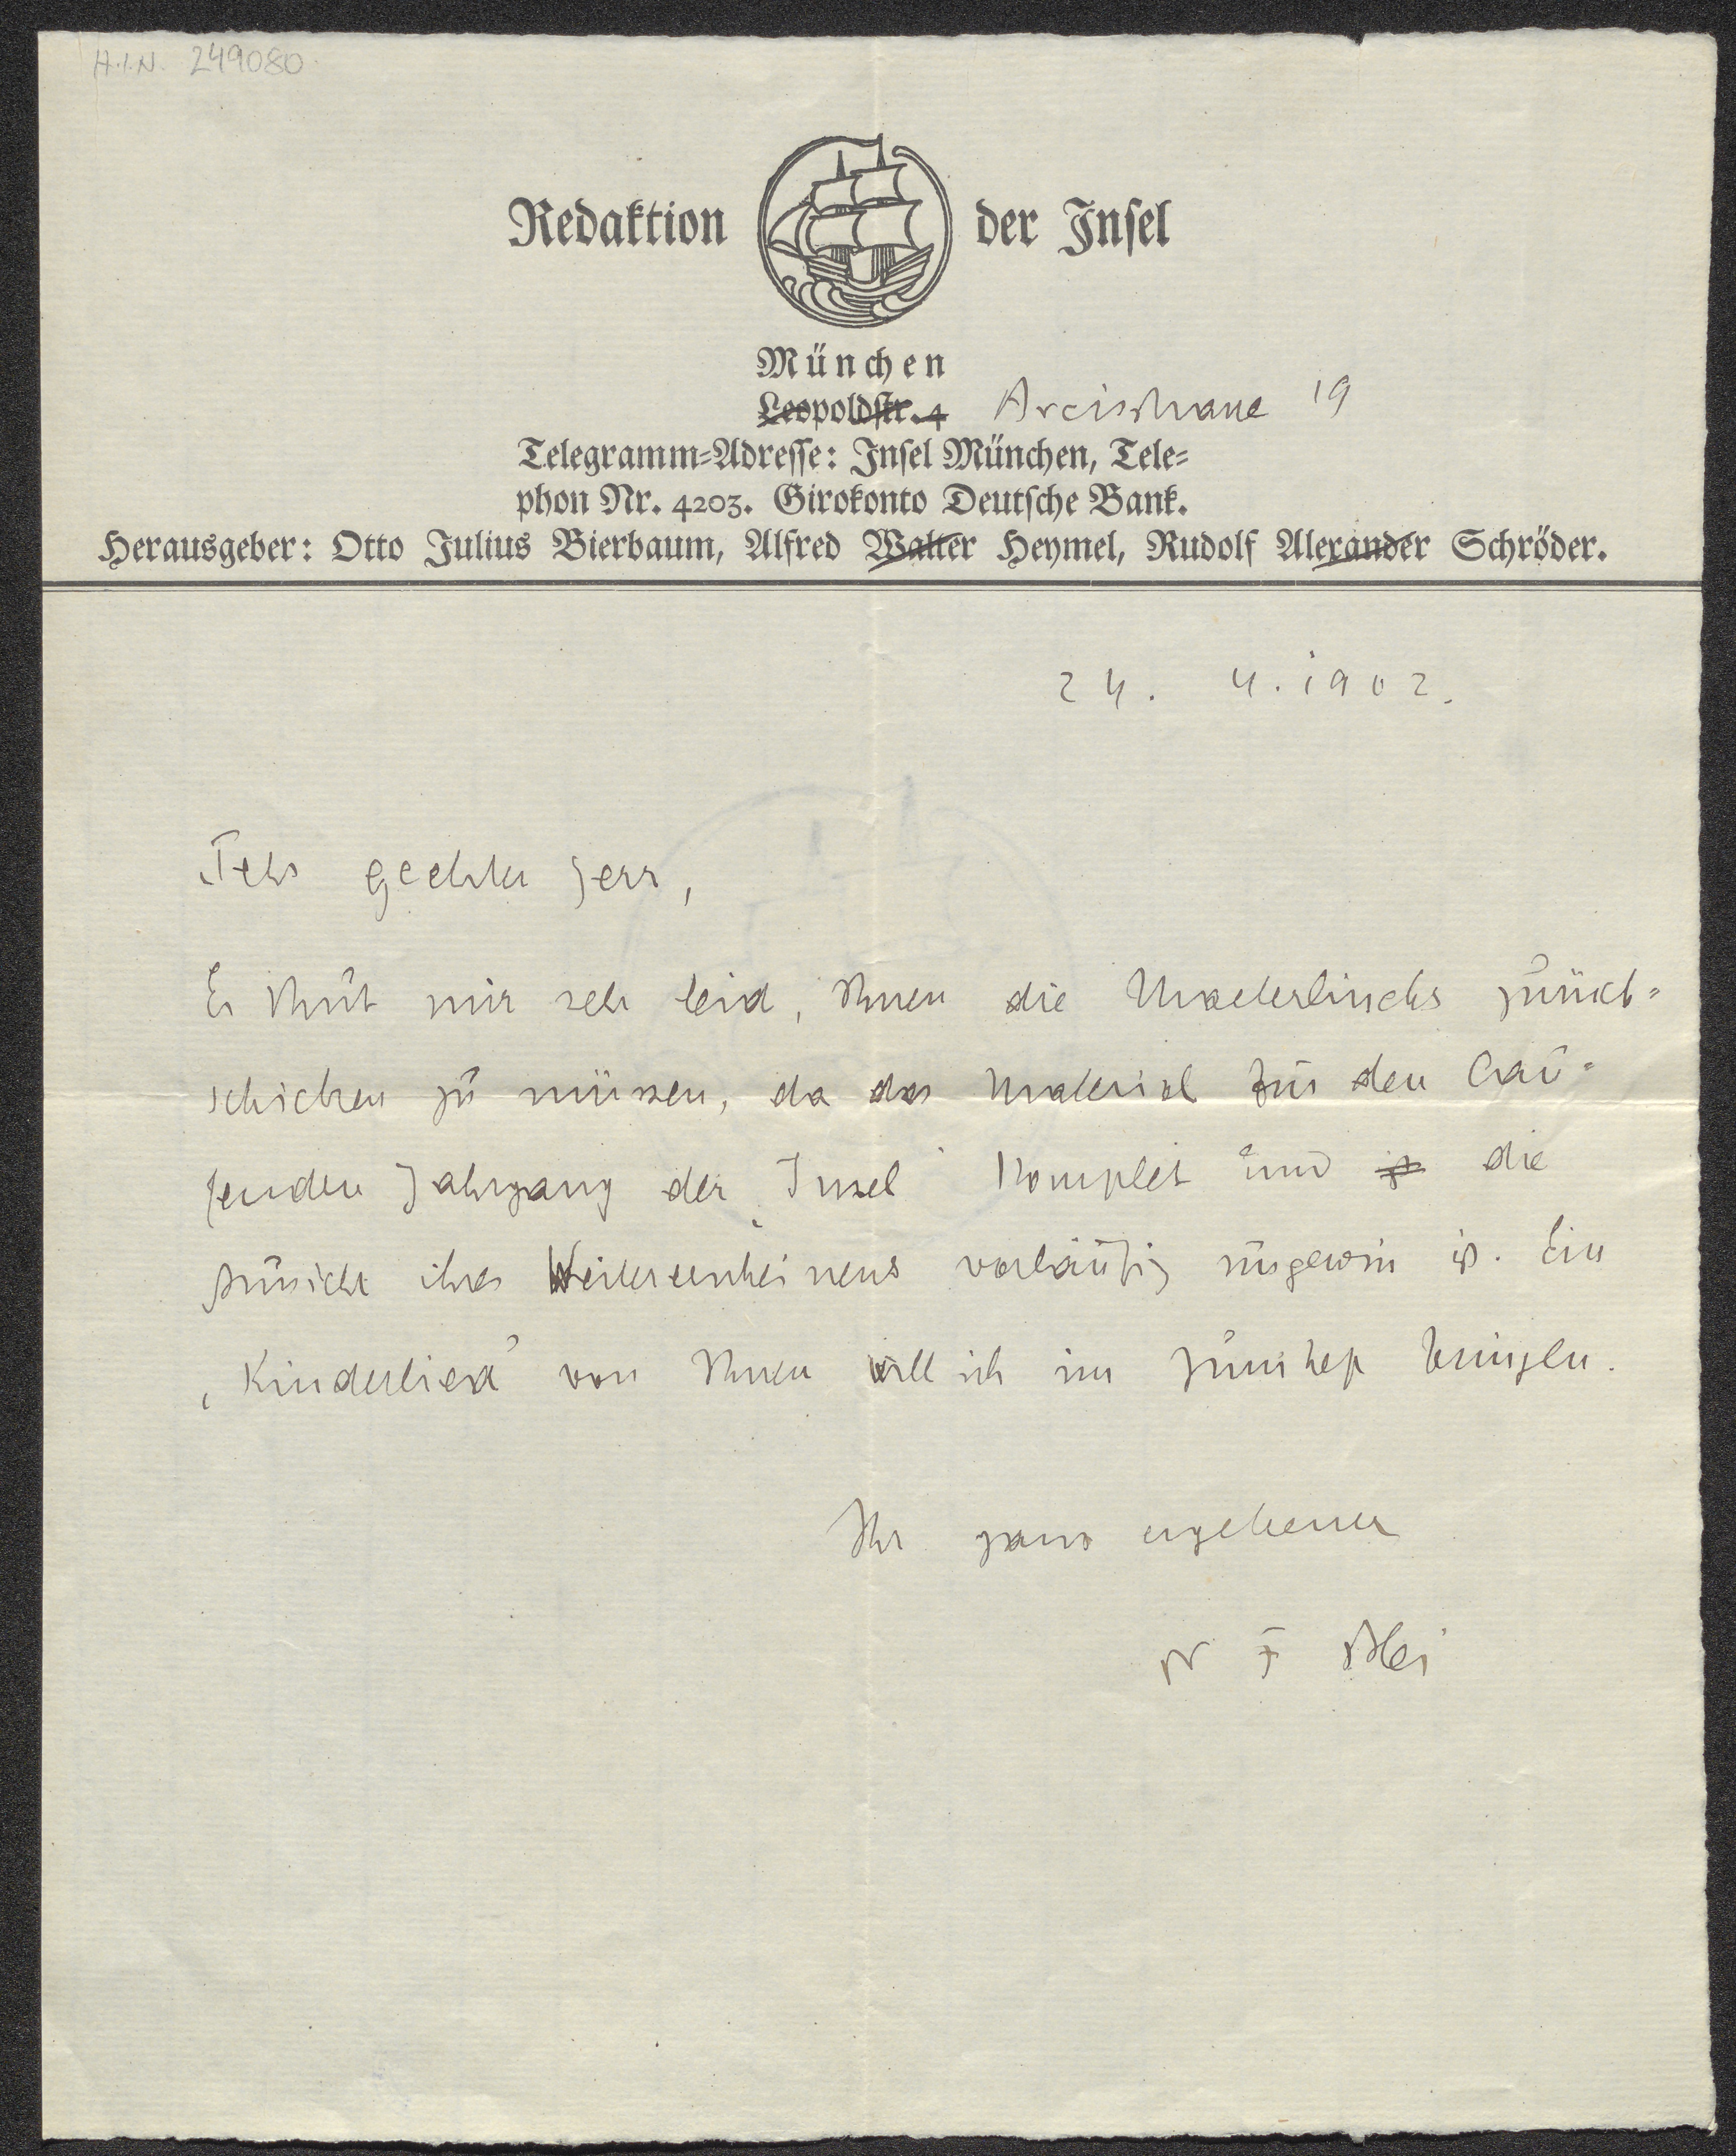 H.I.N. 249080.
Redaktion der Insel
München
Leopoldstr. 4 Arcisstrasse 19
Telegramm-Adresse: Insel München, Tele-
phon Nr. 4203. Girokonto Deutsche Bank.
Herausgeber: Otto Julius Bierbaum, Alfred Walter Heymel, Rudolf Alexander Schröder.
24. 4. 1902.
Sehr geehrter Herr,
Es thut mir sehr leid, Ihnen die Maeterlincks zurück-
schicken zu müssen, da das Material für den lau-
fenden Jahrgang der „Insel“ komplet und ist die
Aussicht ihres Weitererscheinens vorläufig ungewiss ist. Ein
„Kinderlied“ von Ihnen will ich im Juniheft bringen.
Ihr ganz ergebener
Dr F Blei